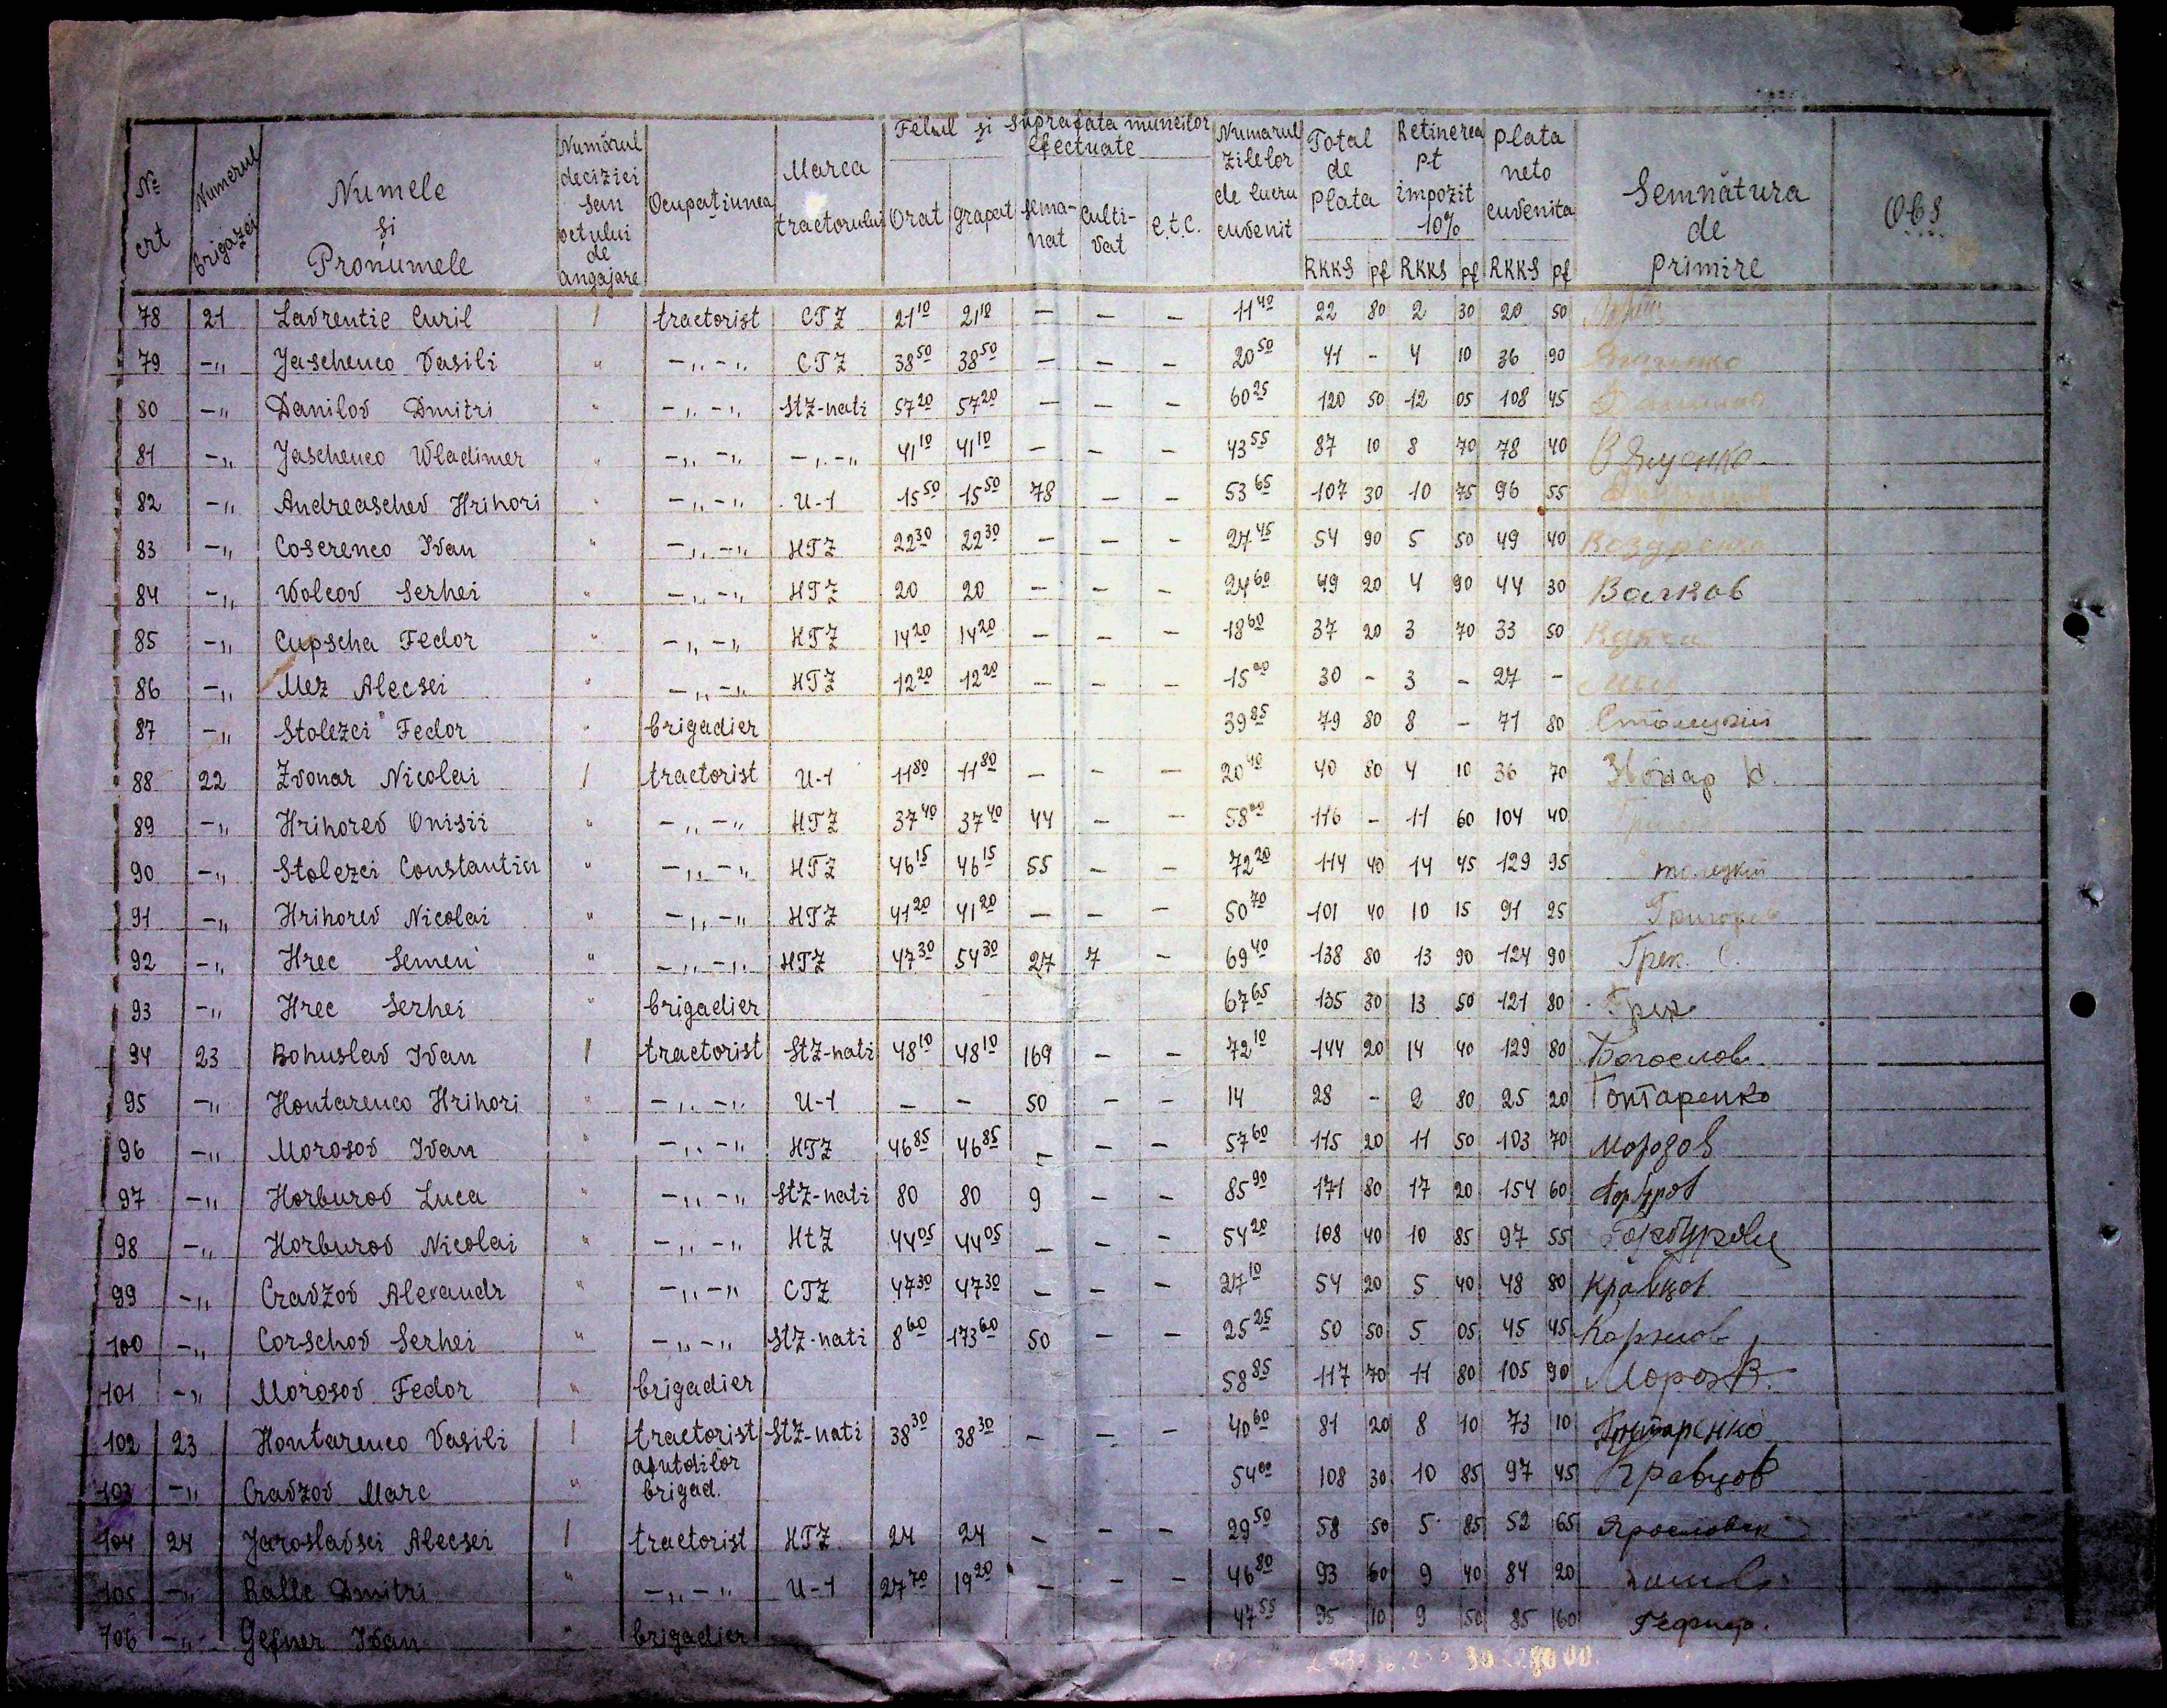 Felul și Suprafata muncilor efectuate
№ crt Numerul brigăzei Numele și Pronumele Numărul deciziei sau actului de angajare Ocupațiunea Marca tractorului Orat grapat sema-nat Culti-vat e.t.c. Numarul zilelor de lucru cuvenit Total de plata Retinerea pt impozit 10% plata neto cuvenita Semnătura de primire Obs
RKKS pf RKKS pf RKKS pf
78 21 Lavrentie Curil / tractorist CTZ 21 10 21 10 — — — 11 40 22 80 2 30 20 50
79 -„- Jaschenco Vasili " -„-„ CTZ 38 50 38 50 — — — 20 50 41 - 4 10 36 90
80 -„- Danilov Dmitri " -„-„ StZ-nati 57 20 57 20 — — — 60 25 120 50 12 05 108 45
81 -„- Jaschenco Wladimer " -„-„ -„-„ 41 10 41 10 — — — 43 55 87 10 8 70 78 40 В Ященко
82 -„- Andreaschev Hrihori " -„-„ U-1 15 50 15 50 78 — — 53 65 107 30 10 75 96 55
83 -„- Coserenco Ivan " -„-„ HTZ 22 30 22 30 — — — 27 45 54 90 5 50 49 40 Каздренко
84 -„- Wolcov Serhei " -„-„ HTZ 20 20 — — — 24 60 49 20 4 90 44 30 Валков
85 -„- Cupscha Fedor " -„-„ HTZ 14 20 14 20 — — — 18 60 37 20 3 70 33 50
86 -„- Mez Alecsei " -„-„ HTZ 12 20 12 20 — — — 15 00 30 - 3 - 27 -
87 -„- Stolezei Fedor " brigadier 39 85 79 80 8 - 71 80 Столецкий
88 22 Zvonar Nicolai / tractorist U-1 11 80 11 80 — — — 20 40 40 80 4 10 36 70 Звонар Н.
89 -„- Hrihorev Onisii " -„-„ HTZ 37 40 37 40 44 — — 58 00 116 - 11 60 104 40
90 -„- Stolezei Constantin " -„-„ HTZ 46 15 46 15 55 — — 72 20 114 40 14 45 129 95 толецкий
91 -„- Hrihorev Nicolai " -„-„ HTZ 41 20 41 20 — — — 50 70 101 40 10 15 91 25 Григорев
92 -„- Hrec Semen " -„-„ HTZ 47 30 54 30 27 7 — 69 40 138 80 13 90 124 90 Грек. С.
93 -„- Hrec Serhei " brigadier 67 65 135 30 13 50 121 80 Грек
94 23 Bohuslav Ivan / tractorist StZ-nati 48 10 48 10 169 — — 72 10 144 20 14 40 129 80 Богослов
95 -„- Hontarenco Hrihori " -„-„ U-1 — — 50 — — 14 28 - 2 80 25 20 Гонтаренко
96 -„- Morosov Ivan " -„-„ HTZ 46 85 46 85 — — — 57 60 115 20 11 50 103 70 Морозов
97 -„- Horburov Luca " -„-„ StZ-nati 80 80 9 — — 85 90 171 80 17 20 154 60 Горбуров
98 -„- Horburov Nicolai " -„-„ HtZ 44 05 44 05 — — — 54 20 108 40 10 85 97 55 Горбуров
99 -„- Cravzov Alexandr " -„-„ CTZ 47 30 47 30 — — — 27 10 54 20 5 40 48 80 Кравцов
100 -„- Corschov Serhei " -„-„ StZ-nati 8 60 173 60 50 — — 25 25 50 50 5 05 45 45 Коршов
101 -„- Morosov Fedor " brigadier 58 85 117 70 11 80 105 90 Морозов.
102 23 Hontarenco Vasili / tractorist StZ-nati 38 30 38 30 — — — 40 60 81 20 8 10 73 10 Гонтаренко
103 -„- Cravzov Marc " brigad. 54 00 108 30 10 85 97 45 Кравцов
104 24 Jaroslavsci Alecsei / tractorist HTZ 24 24 — — — 29 50 58 50 5 85 52 65 Ярославск
105 -„- Ralle Dmitri " -„-„ U-1 27 70 19 20 — — — 46 80 93 60 9 40 84 20
106 -„- Gefner Ivan " brigadier 47 55 95 10 9 50 85 60 Гефнер.